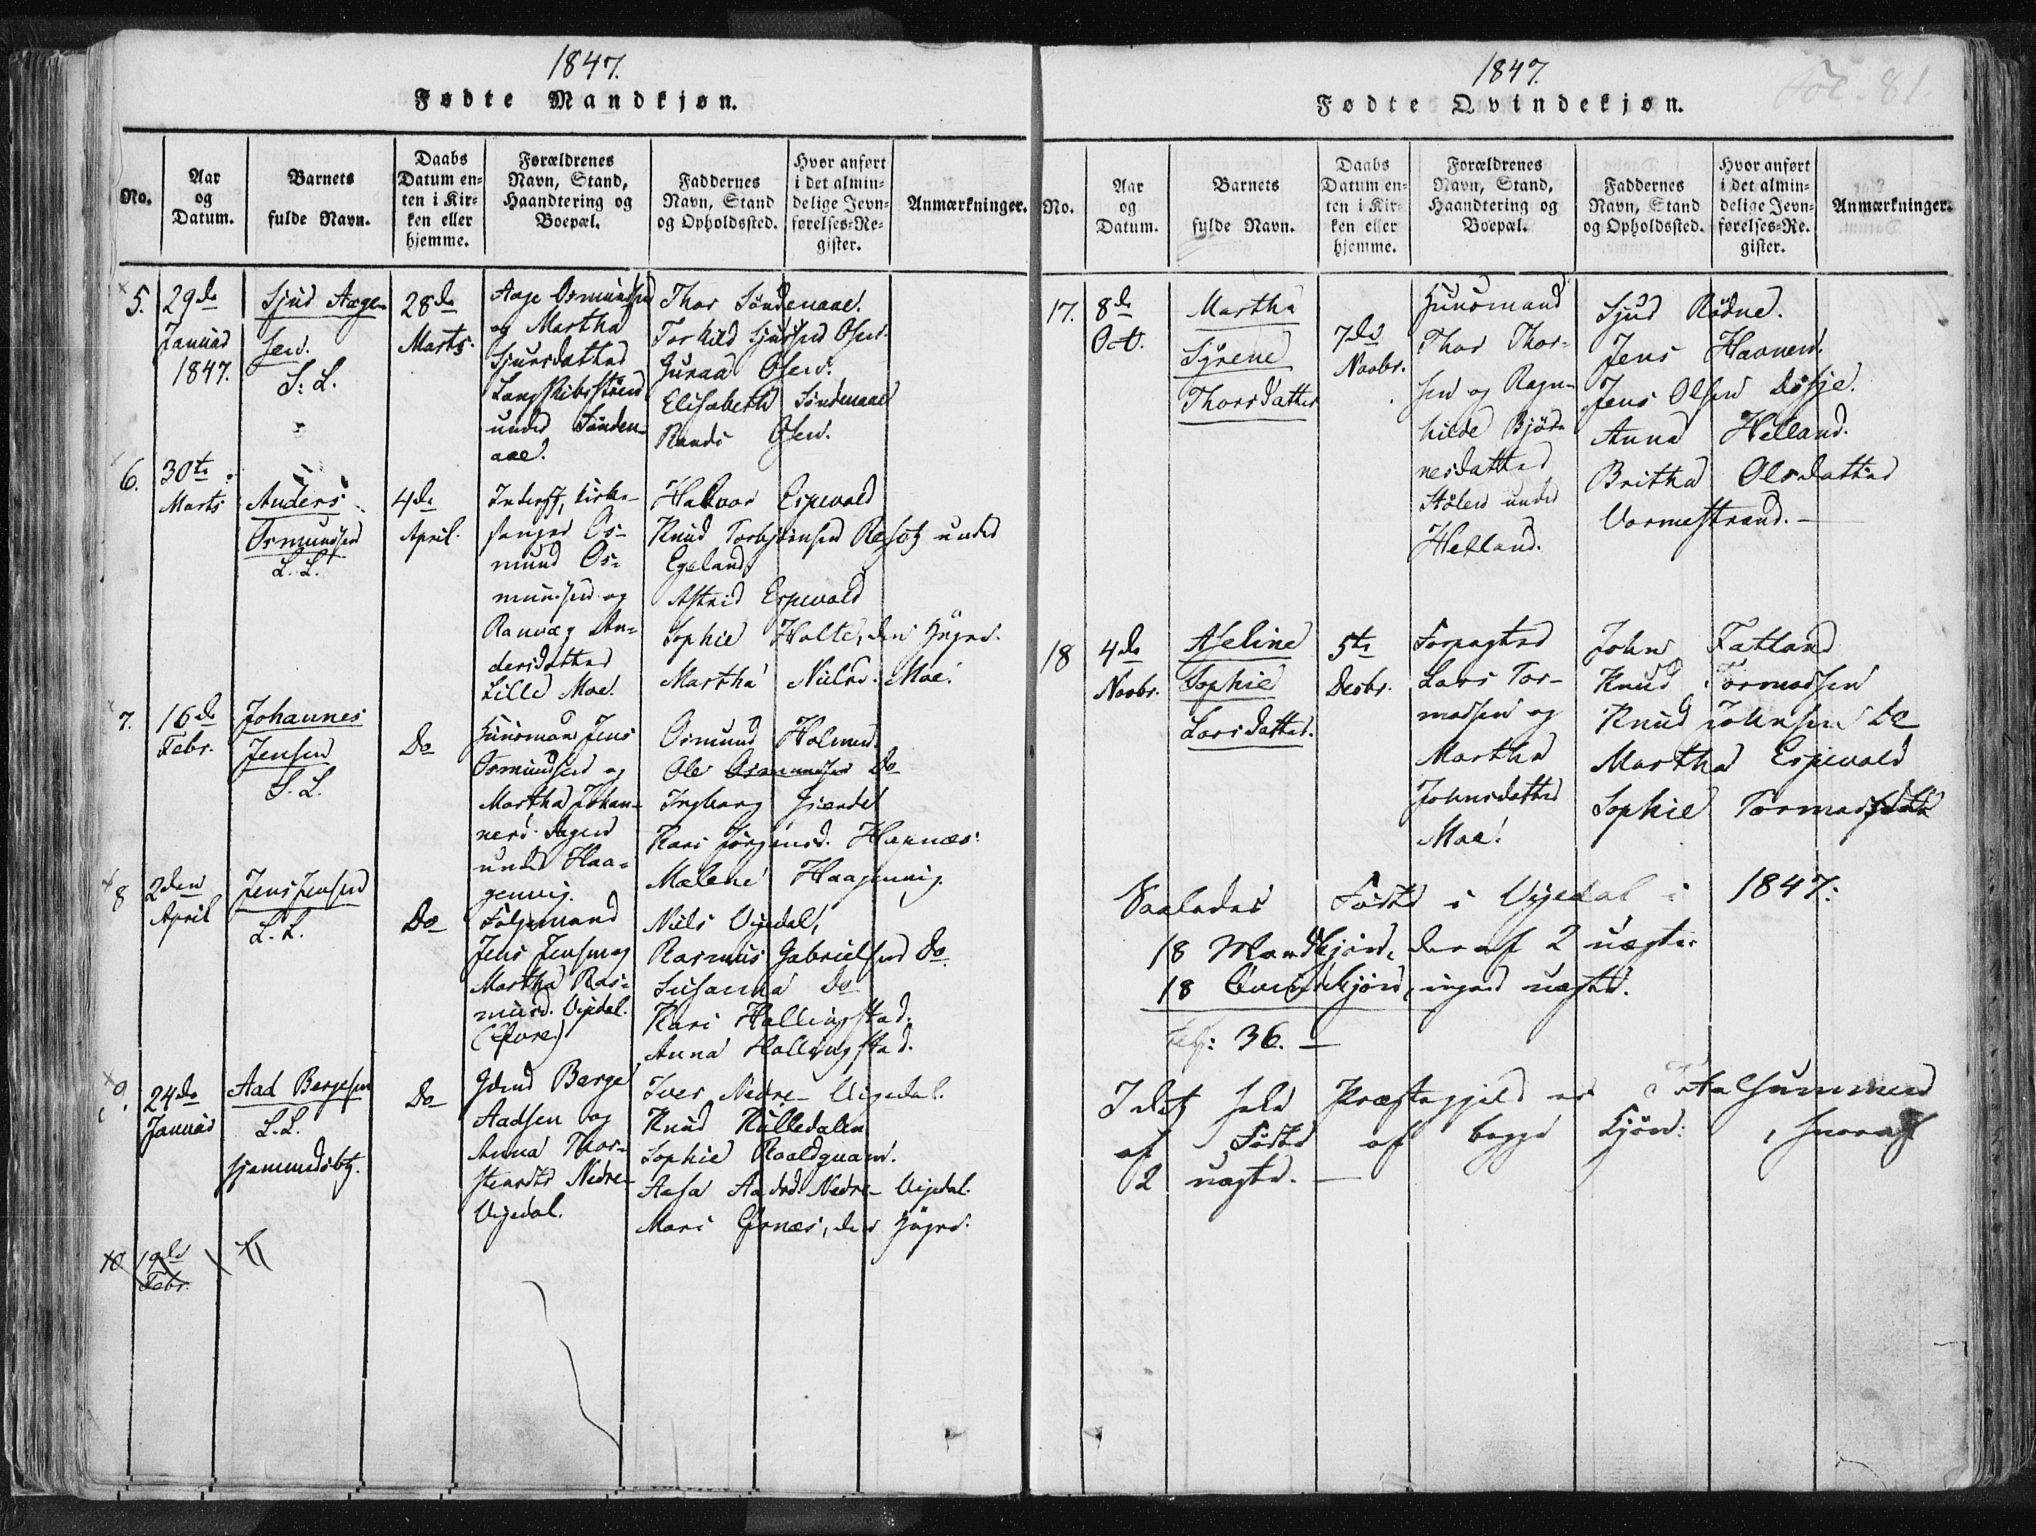 1847.
Fødte Mandkjøn.
No.
Aar
og
Datum.
Barnets
fulde Navn.
Daabs
Datum en-
ten i Kir-
ken eller
hjemme.
Forældrenes
Navn, Stand,
Haandtering og
Boepæl.
Faddernes
Navn, Stand
og Opholdssted.
Hvor anført
i det almin-
delige Jevn-
førelses-Re-
gister.
Anmærkninger.
5.
29de
Januar
1847.
Sjur Aage-
sen.
S. L.
28de
Marts.
Aage Osmundsen
og Martha
Sjursdatter
Langskibsstøen
under Sønden-
aae.
Thor Søndenaae.
Torkild Sjursen Osen.
Guraa Osen.
Elisabeth Søndenaae
Randi Osen.
6.
30te
Marts
Anders
Osmundsen
L. L.
4de
April.
Kirke-
sanger Os-
mund Os-
mundsen og
Ranvæg An-
dersdatter
Lille Moe.
Halvor Espevold
Knud Torbjørnsen under
Egeland.
Astrid Espevold
Sophie Holte, den Yngre.
Martha Nielsd. Moe.
7.
16de
Febr.
Johannes
Jensen
S. L.
Do
Huusmand Jens
Osmundsen og
Martha Johan-
under Haa-
genvig.
Osmund Holmen.
Ole Osmundsen Do
Ingborg
Kari Jørgensd. Hapnæs.
Malene Haagenvig.
8
2den
April
Jens Jensen
L. L.
Do
Jens Jensen og
Martha Ras-
musd. Vigedal.
Niels Vigedal,
Rasmus Gabrielsen Do.
Susanna Do
Kari Hallingstad.
Anna Hallingstad.
9.
24de
Januar
Aad Bergesen
L. L.
hjemmedøbt.
Do
Gdmd Berge
Aadsen og
Anna Thor-
stensdtr Nedre-
Vigedal.
Iver Nedre-Vigedal.
Knud Kulledalen
Sophie Roaldquam.
Aasa Aadsd. Nedre-Vigedal.
Mari Øfnæs, den Yngre.
10
19de
Febr.
1847.
Fol. 81.
Fødte Qvindekjøn.
No.
Aar
og
Datum.
Barnets
fulde Navn.
Daabs
Datum en-
ten i Kir-
ken eller
hjemme.
Forældrenes
Navn, Stand,
Haandtering og
Boepæl.
Faddernes
Navn, Stand
og Opholdssted.
Hvor anført
i det almin-
delige Jevn-
førelses-Re-
gister.
Anmærkninger.
17.
8de
Oct.
Martha
Syrene
Thorsdatter
7de
Novbr.
Huusmand
Thor Thor-
sen og Ragn-
hilde Bjør-
nesdatter
Stølen under
Helland.
Sjur Rødne.
Jens Havnen.
Jens Olsen Døsje.
Anna Helland.
Britha Olsdatter
Vormestrand.
18
4de
Novbr.
Aseline
Sophie
Larsdatter.
5te
Decbr.
Forpagter
Lars Tor-
madsen og
Martha
Johnsdatter
Moe.
John Fatland
Knud Tormodsen
Knud Johnsen Do
Martha Espevold
Sophie
Saaledes Fødte i Vigedal i 1847:
18 Mandkjøn, deraf 2 uægte.
18 Qvindekjøn, ingen uægte.
36.
I det hele Præstegjeld er Talsummen
af Fødte af begge Kjøn: , hvoraf
2 uægte.